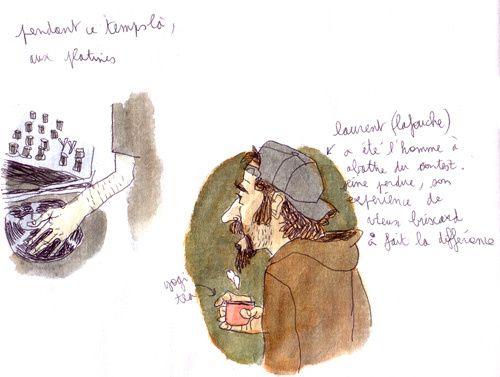 pendant ce temps là,
aux platines
laurent (lafouche)
a été l'homme à
abattre du contest.
peine perdue, son
expérience de
vieux briscard
à fait la différence
yogi
tea